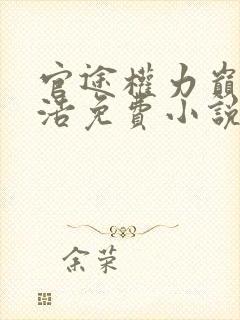 官途權力巔
活免費小說
余荣